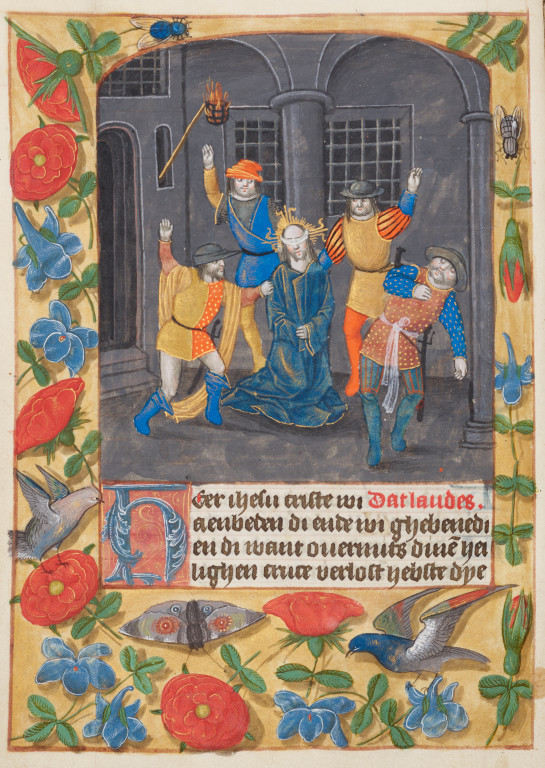 Heer ihesu criste wi Dat laudes.
aenbeden di ende wi ghebenedi
en di want overmits dinē hei
lighen cruce verlost hebste dye